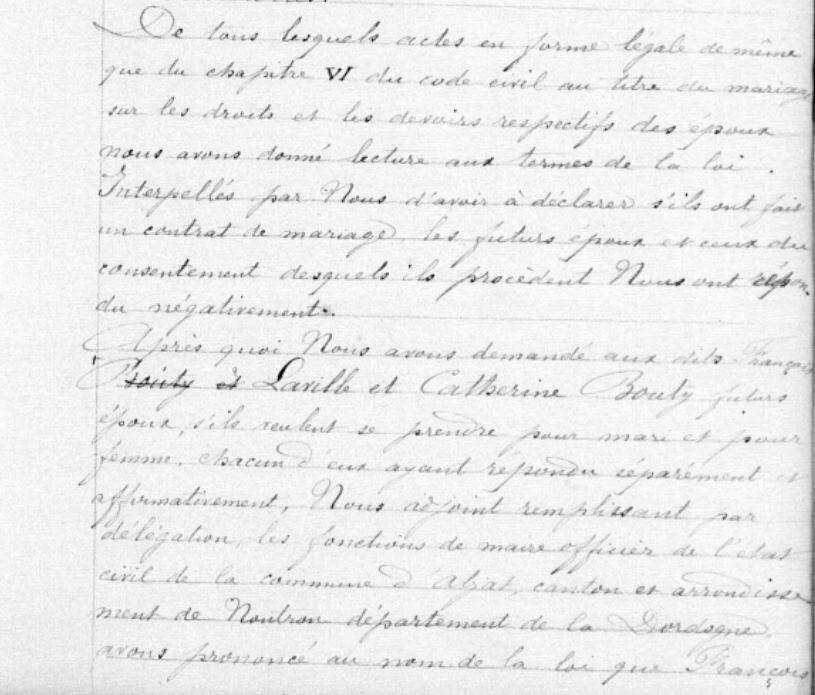 De tous lesquels actes en forme légale de même
que du chapitre VI du code civil au titre du mariage
sur les droits et les devoirs respectifs des époux
nous avons donné lecture aux termes de la loi.
Interpellés par Nous d'avoir à déclarer s'ils ont fait
un contrat de mariage, les futurs époux et ceux du
consentement desquels ils procèdent Nous ont répon-
du négativement.
Après quoi Nous avons demandé aux dits François
Bouty et Laville et Catherine Bouty futurs
époux, s'ils veulent se prendre pour mari et pour
femme, chacun d'eux ayant répondu séparément et
affirmativement, Nous adjoint remplissant par
délégation, les fonctions de maire officier de l'état
civil de la commune d'Abjat, canton et arrondisse
ment de Nontron département de la Dordogne,
avons prononcé au nom de la loi que François